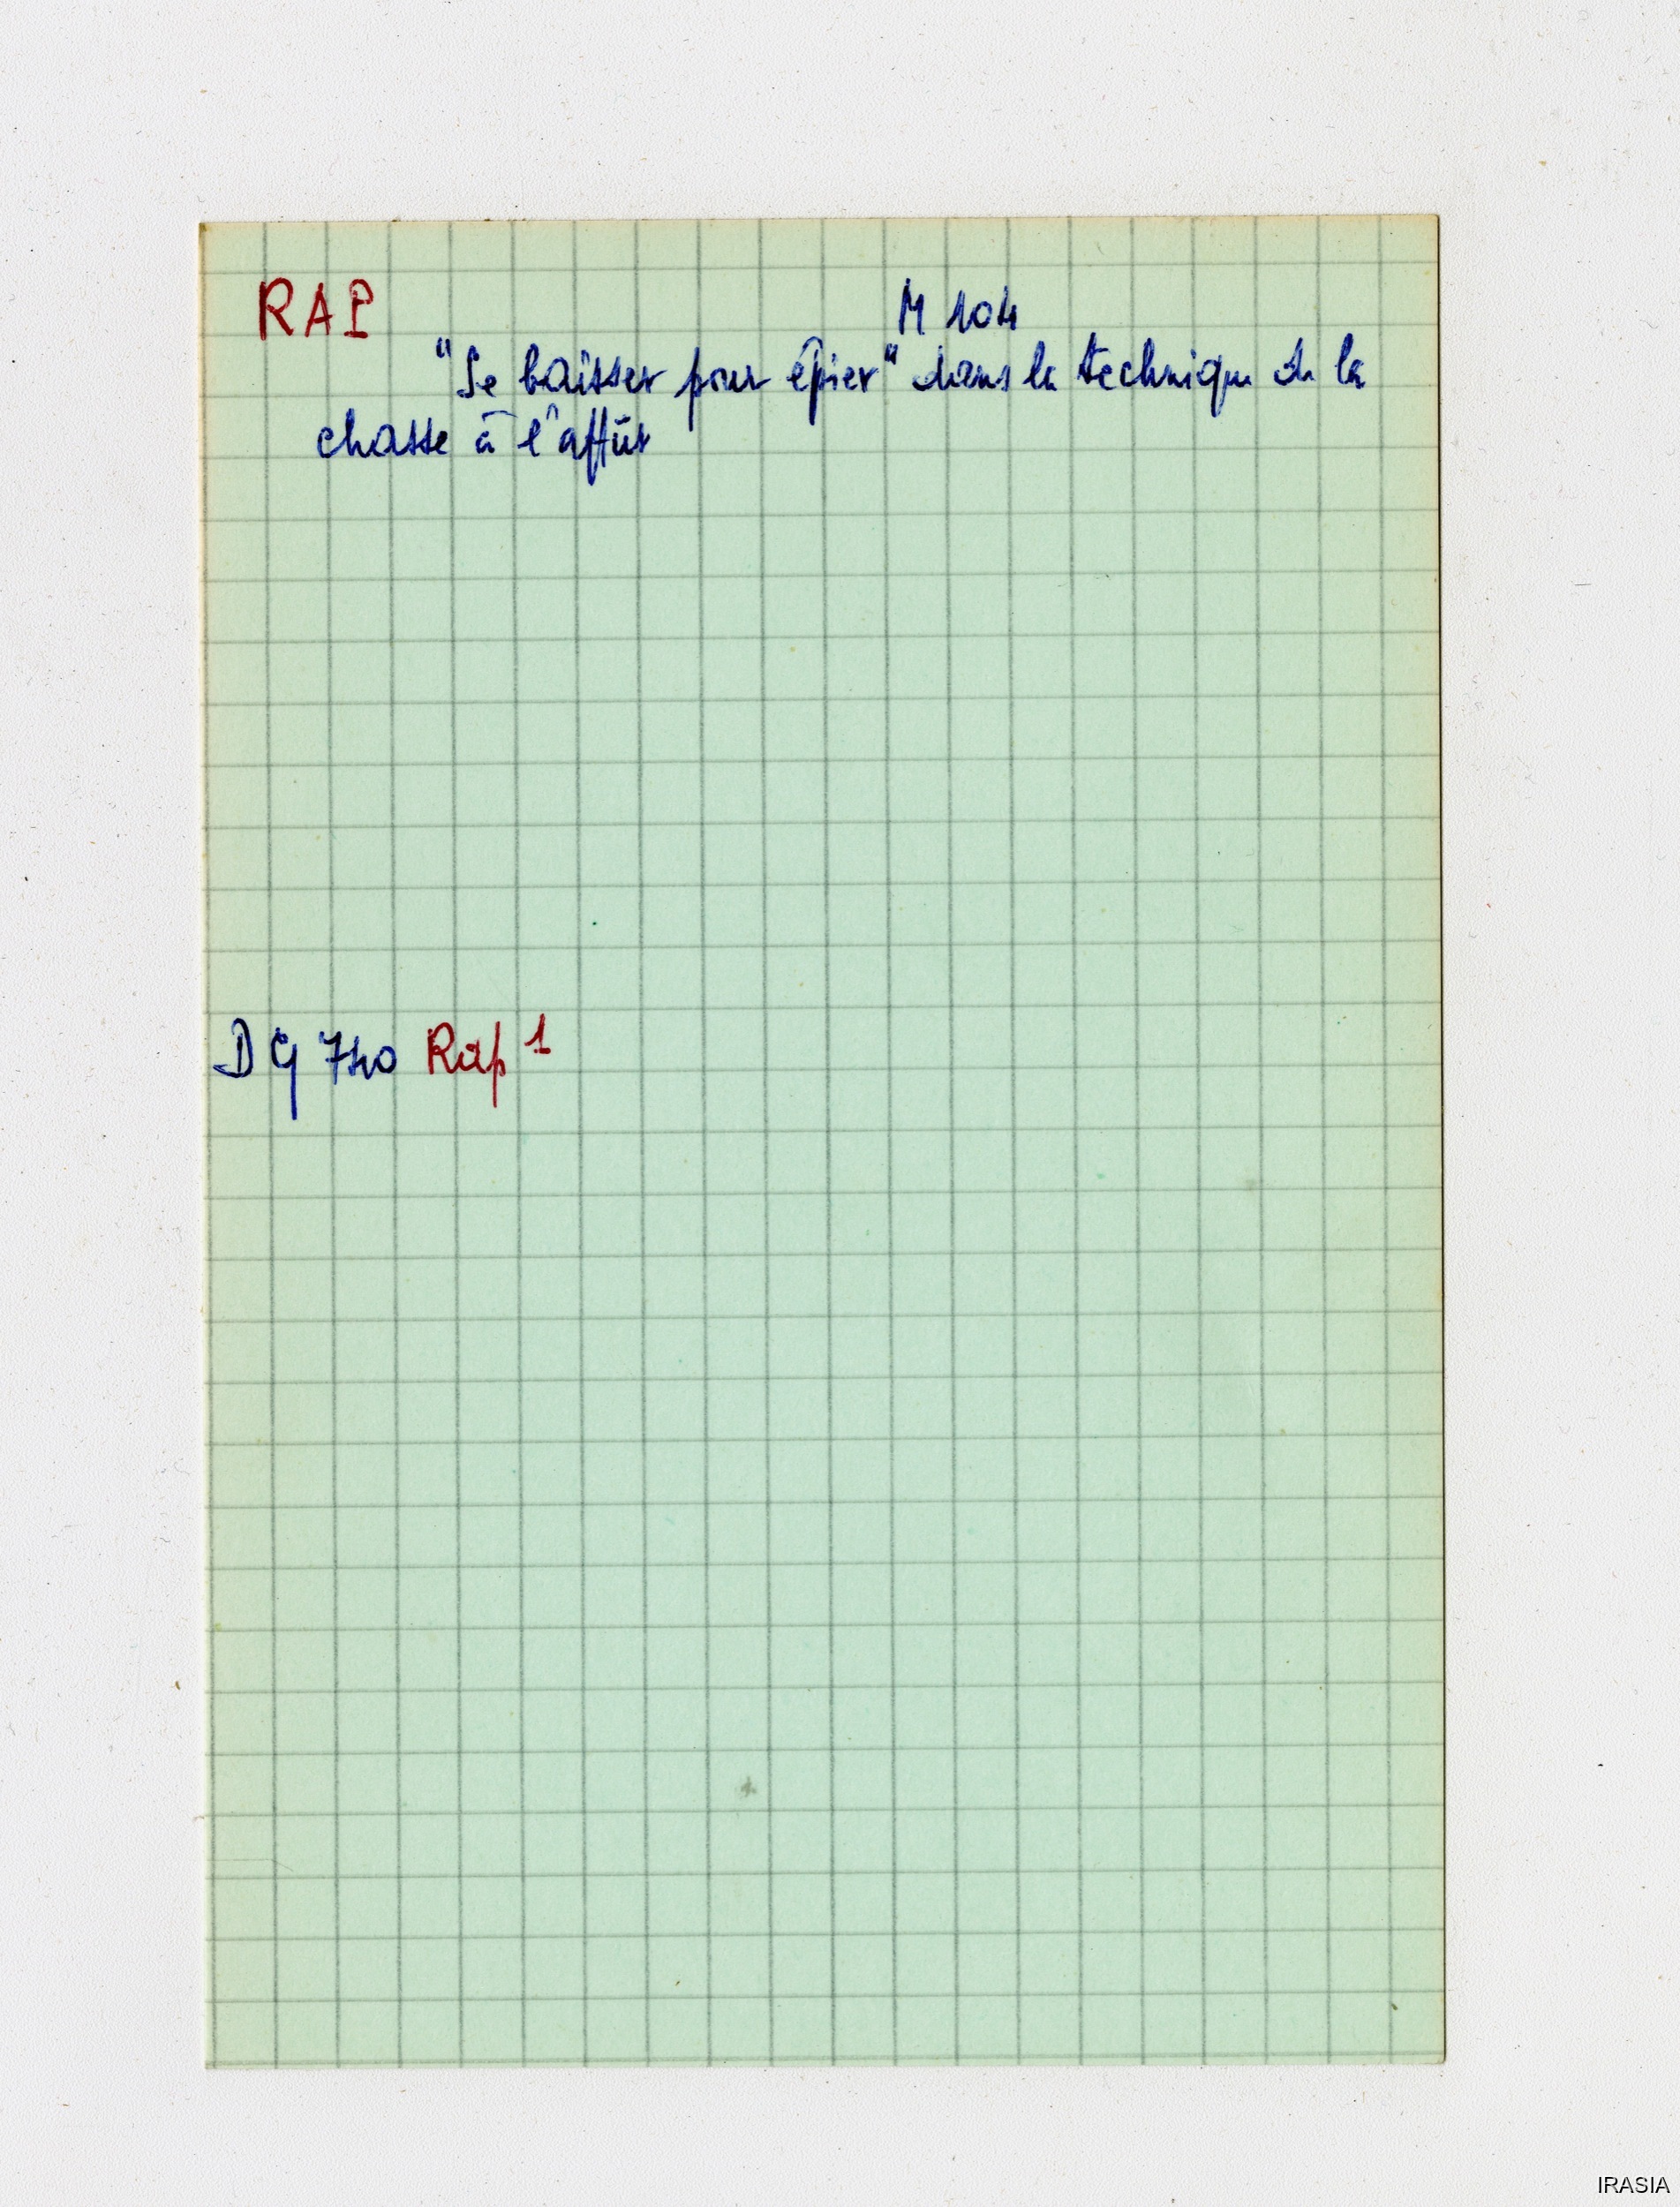 RAP
M 104
"Se baisser pour épier" dans la technique de la
chasse à l'affût
DG 740 Rap 1
IRASIA